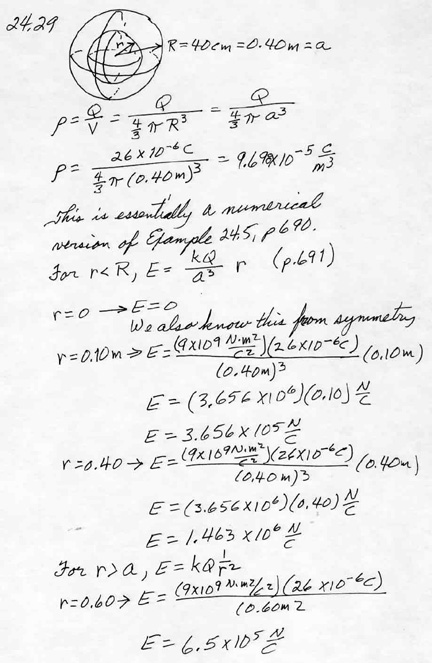 24.29
r R = 40cm = 0.40m = a
ρ = Q/V = Q/(4/3 π R³) = Q/(4/3 π a³)
ρ = 26 x 10⁻⁶ C/(4/3 π (0.40m)³) = 9.698 x 10⁻⁵ C/m³
This is essentially a numerical
version of Example 24.5, p 690.
For r < R, E = kQ/a³ r (p.691)
r = 0 → E = 0
We also know this from symmetry
r = 0.10m ⇒ E = (9x10⁹ N·m²/C²)(26x10⁻⁶C)/(0.40m)³ (0.10m)
E = (3.656 x 10⁶)(0.10) N/C
E = 3.656 x 10⁵ N/C
r = 0.40 → E = (9x10⁹ N·m²/C²)(26x10⁻⁶C)/(0.40m)³ (0.40m)
E = (3.656 x 10⁶)(0.40) N/C
E = 1.463 x 10⁶ N/C
For r > a, E = kQ 1/r²
r = 0.60 → E = (9x10⁹ N·m²/C²)(26 x 10⁻⁶C)/(0.60m²
E = 6.5 x 10⁵ N/C